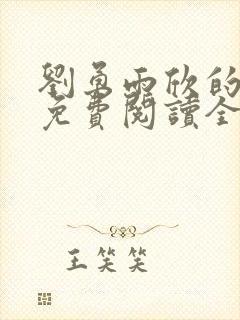 劉勇雨欣的
免費閱讀全
王笑笑